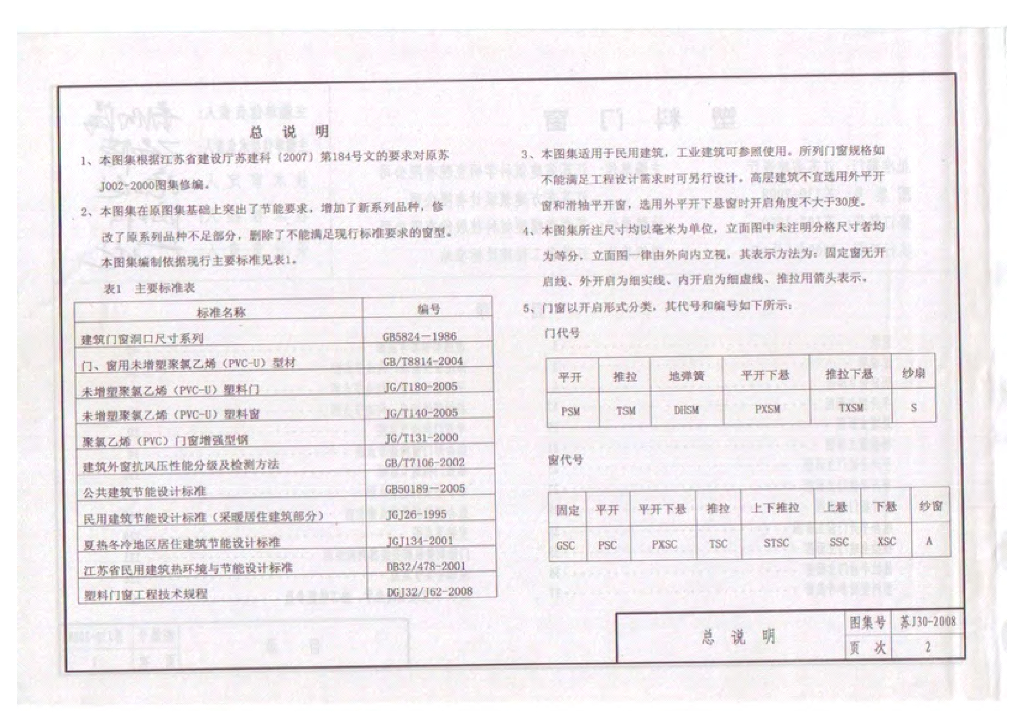 总 说 明
1、本图集根据江苏省建设厅苏建科〔2007〕第184号文的要求对原苏
J002-2000图集修编。
2、本图集在原图集基础上突出了节能要求，增加了新系列品种，修
改了原系列品种不足部分，删除了不能满足现行标准要求的窗型。
本图集编制依据现行主要标准见表1。
表1 主要标准表
标准名称 编号
建筑门窗洞口尺寸系列 GB5824—1986
门、窗用未增塑聚氯乙烯（PVC-U）型材 GB/T8814-2004
未增塑聚氯乙烯（PVC-U）塑料门 JG/T180-2005
未增塑聚氯乙烯（PVC-U）塑料窗 JG/T140-2005
聚氯乙烯（PVC）门窗增强型钢 JG/T131-2000
建筑外窗抗风压性能分级及检测方法 GB/T7106-2002
公共建筑节能设计标准 GB50189—2005
民用建筑节能设计标准（采暖居住建筑部分） JGJ26-1995
夏热冬冷地区居住建筑节能设计标准 JGJ134-2001
江苏省民用建筑热环境与节能设计标准 DB32/478-2001
塑料门窗工程技术规程 DGJ32/J62-2008
3、本图集适用于民用建筑，工业建筑可参照使用。所列门窗规格如
不能满足工程设计需求时可另行设计。高层建筑不宜选用外平开
窗和滑轴平开窗，选用外平开下悬窗时开启角度不大于30度。
4、本图集所注尺寸均以毫米为单位，立面图中未注明分格尺寸者均
为等分。立面图一律由外向内立视，其表示方法为：固定窗无开
启线、外开启为细实线、内开启为细虚线、推拉用箭头表示。
5、门窗以开启形式分类，其代号和编号如下所示：
门代号
平开 推拉 地弹簧 平开下悬 推拉下悬 纱扇
PSM TSM DHSM PXSM TXSM S
窗代号
固定 平开 平开下悬 推拉 上下推拉 上悬 下悬 纱窗
GSC PSC PXSC TSC STSC SSC XSC A
总 说 明
图集号 苏J30-2008
页 次 2